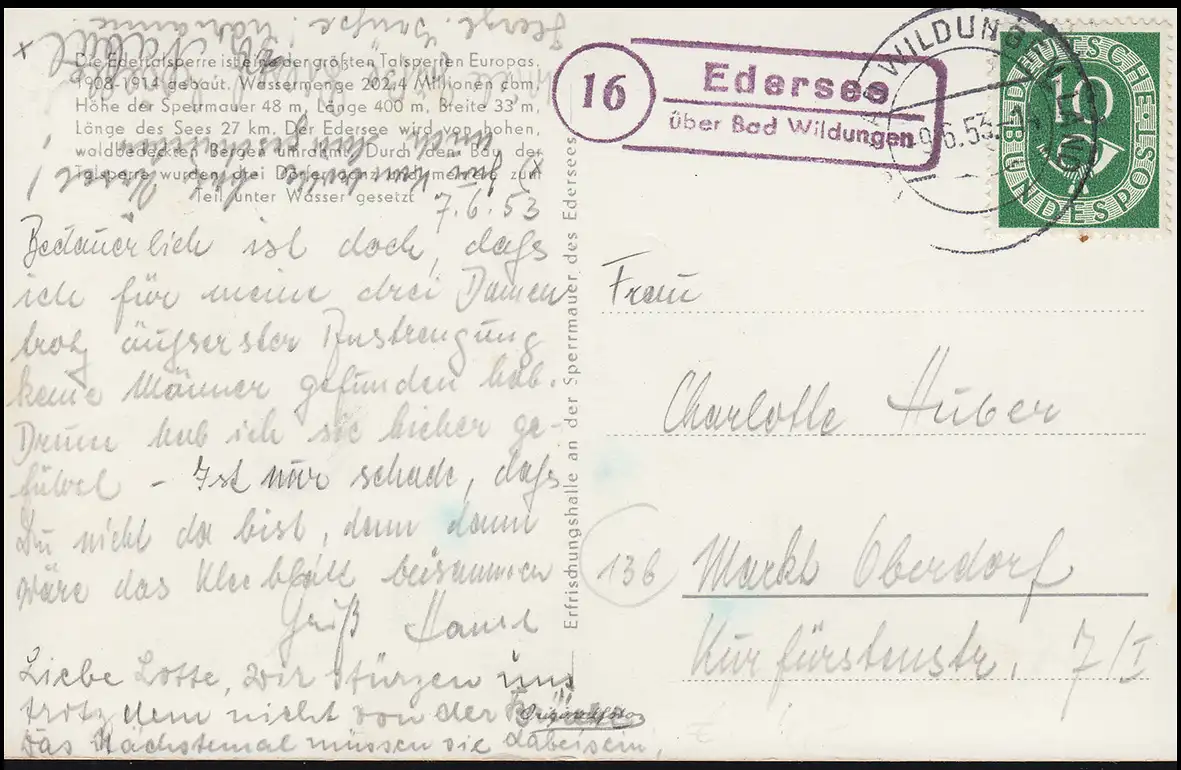 Die Edertalsperre ist eine der größten Talsperren Europas.
1908-1914 gebaut. Wassermenge 202,4 Millionen cbm.
Höhe der Sperrmauer 48 m, Länge 400 m, Breite 33 m.
Länge des Sees 27 km. Der Edersee wird von hohen,
waldbedeckten Bergen umrahmt. Durch den Bau der
Talsperre wurden drei Dörfer ganz und mehrere zum
Teil unter Wasser gesetzt
7.6.53
Bedauerlich ist doch, dass
ich für meine drei Damen
trotz äußserster Anstrengung
keine Männer gefunden hab.
Drum hab ich sie bisher ge-
führt - Ist nur schade, dass
Du nicht da bist, denn dann
wäre das Kleeblatt beisammen
Gruß
Liebe Lotte, wir stürzen uns
trotzdem nicht von der
Das Nächstemal müssen sie dabeisein,
Originalfoto
Erfrischungshalle an der Sperrmauer des Edersees
16
Edersee
über Bad Wildungen
BAD WILDUNGEN
9.6.53
DEUTSCHE BUNDESPOST
10
Frau
Charlotte Huber
13b
Markt Oberdorf
Kurfürstenstr. 7/I